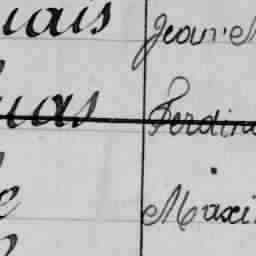 uais Jeanne
uas Ferdina
e Maxi